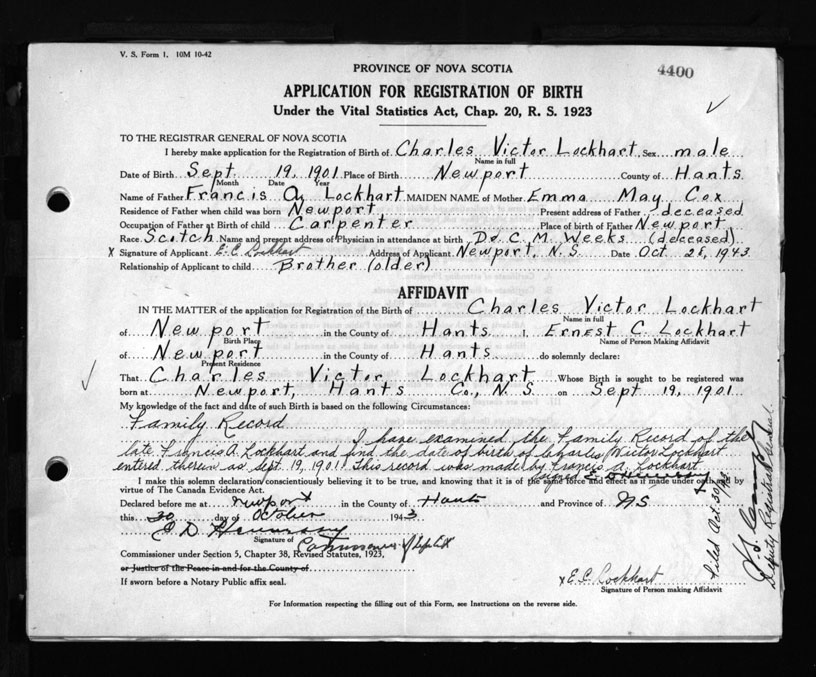 V. S. Form 1. 10M 10-42
PROVINCE OF NOVA SCOTIA
4400
APPLICATION FOR REGISTRATION OF BIRTH
Under the Vital Statistics Act, Chap. 20, R. S. 1923
TO THE REGISTRAR GENERAL OF NOVA SCOTIA
I hereby make application for the Registration of Birth of Charles Victor Lockhart Sex male
Name in full
Date of Birth Sept 19, 1901 Place of Birth Newport County of Hants
Month Date Year
Name of Father Francis A. Lockhart MAIDEN NAME of Mother Emma May Cox
Residence of Father when child was born Newport Present address of Father deceased
Occupation of Father at Birth of child Carpenter Place of birth of Father Newport
Race Scitch Name and present address of Physician in attendance at birth Dr C. M. Weeks (deceased)
X Signature of Applicant E C Lockhart Address of Applicant Newport, N.S. Date Oct 28, 1943
Relationship of Applicant to child Brother (older)
AFFIDAVIT
IN THE MATTER of the application for Registration of the Birth of Charles Victor Lockhart
Name in full
of Newport in the County of Hants I, Ernest C. Lockhart
Birth Place Name of Person Making Affidavit
of Newport in the County of Hants do solemnly declare:
Present Residence
That Charles Victor Lockhart Whose Birth is sought to be registered was
born at Newport, Hants Co., N.S. on Sept 19, 1901
My knowledge of the fact and date of such Birth is based on the following Circumstances:
Family Record
I have examined the Family Record of the
late Francis A. Lockhart and find the date of birth of Charles Victor Lockhart
entered therein as Sept. 19, 1901. This record was made by Francis A. Lockhart.
I make this solemn declaration conscientiously believing it to be true, and knowing that it is of the same force and effect as if made under oath and by
virtue of The Canada Evidence Act.
Declared before me at Newport in the County of Hants and Province of NS
this 30 day of October 1943
Signature of
Commissioner under Section 5, Chapter 38, Revised Statutes, 1923,
or Justice of the Peace in and for the County of
If sworn before a Notary Public affix seal.
x E C Lockhart
Signature of Person making Affidavit
Filed Oct 30/43
Deputy Registrar General
For Information respecting the filling out of this Form, see Instructions on the reverse side.